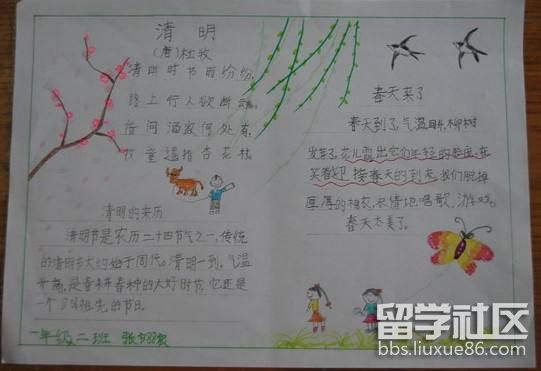 清明
(唐)杜牧
清明时节雨纷纷,
路上行人欲断魂。
借问酒家何处有,
牧童遥指杏花村
清明的来历
清明节是农历二十四节气之一,传统
的清明节大约始于周代。清明一到,气温
升高,是春耕春种的大好时节,它还是
一个 祖先的节日。
一年级二班 张
春天来了
春天到了,气温回升,柳树
发芽了,花儿露出它们 的脸庞,在
笑着迎接春天的到来,我们脱掉
厚厚的棉衣,尽情地唱歌,游戏。
春天太美了。
留学社区
bbs.liuxue86.com